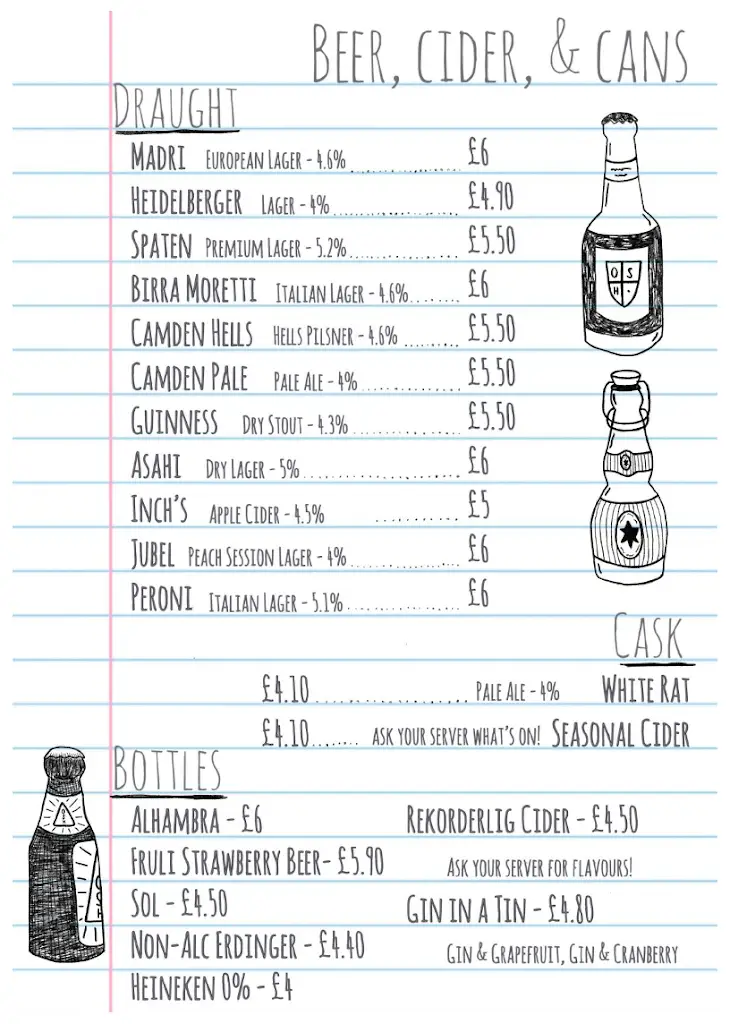 BEER, CIDER, & CANS
DRAUGHT
MADRI EUROPEAN LAGER - 4.6% .................... £6
HEIDELBERGER LAGER - 4% .................... £4.90
SPATEN PREMIUM LAGER - 5.2% .................... £5.50
BIRRA MORETTI ITALIAN LAGER - 4.6% ........ £6
CAMDEN HELLS HELLS PILSNER - 4.6% ......... £5.50
CAMDEN PALE PALE ALE - 4% ................ £5.50
GUINNESS DRY STOUT - 4.3% .................. £5.50
ASAHI DRY LAGER - 5% ......................... £6
INCH'S APPLE CIDER - 4.5% ............. £5
JUBEL PEACH SESSION LAGER - 4% .................. £6
PERONI ITALIAN LAGER - 5.1% .................. £6
CASK
£4.10 ........................ PALE ALE - 4% WHITE RAT
£4.10 ........ ASK YOUR SERVER WHAT'S ON! SEASONAL CIDER
BOTTLES
ALHAMBRA - £6
FRULI STRAWBERRY BEER- £5.90
SOL - £4.50
NON-ALC ERDINGER - £4.40
HEINEKEN 0% - £4
REKORDERLIG CIDER - £4.50
ASK YOUR SERVER FOR FLAVOURS!
GIN IN A TIN - £4.80
GIN & GRAPEFRUIT, GIN & CRANBERRY
O S
H .
OSH